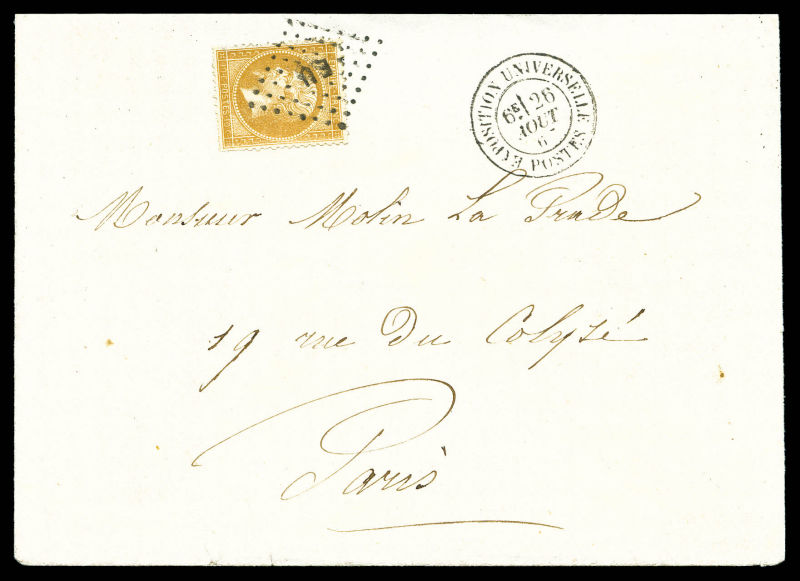 EU
EXPOSITION UNIVERSELLE
6E 26
AOUT
6
POSTES
Monsieur Molin La Prade
19 rue du Colysé
Paris